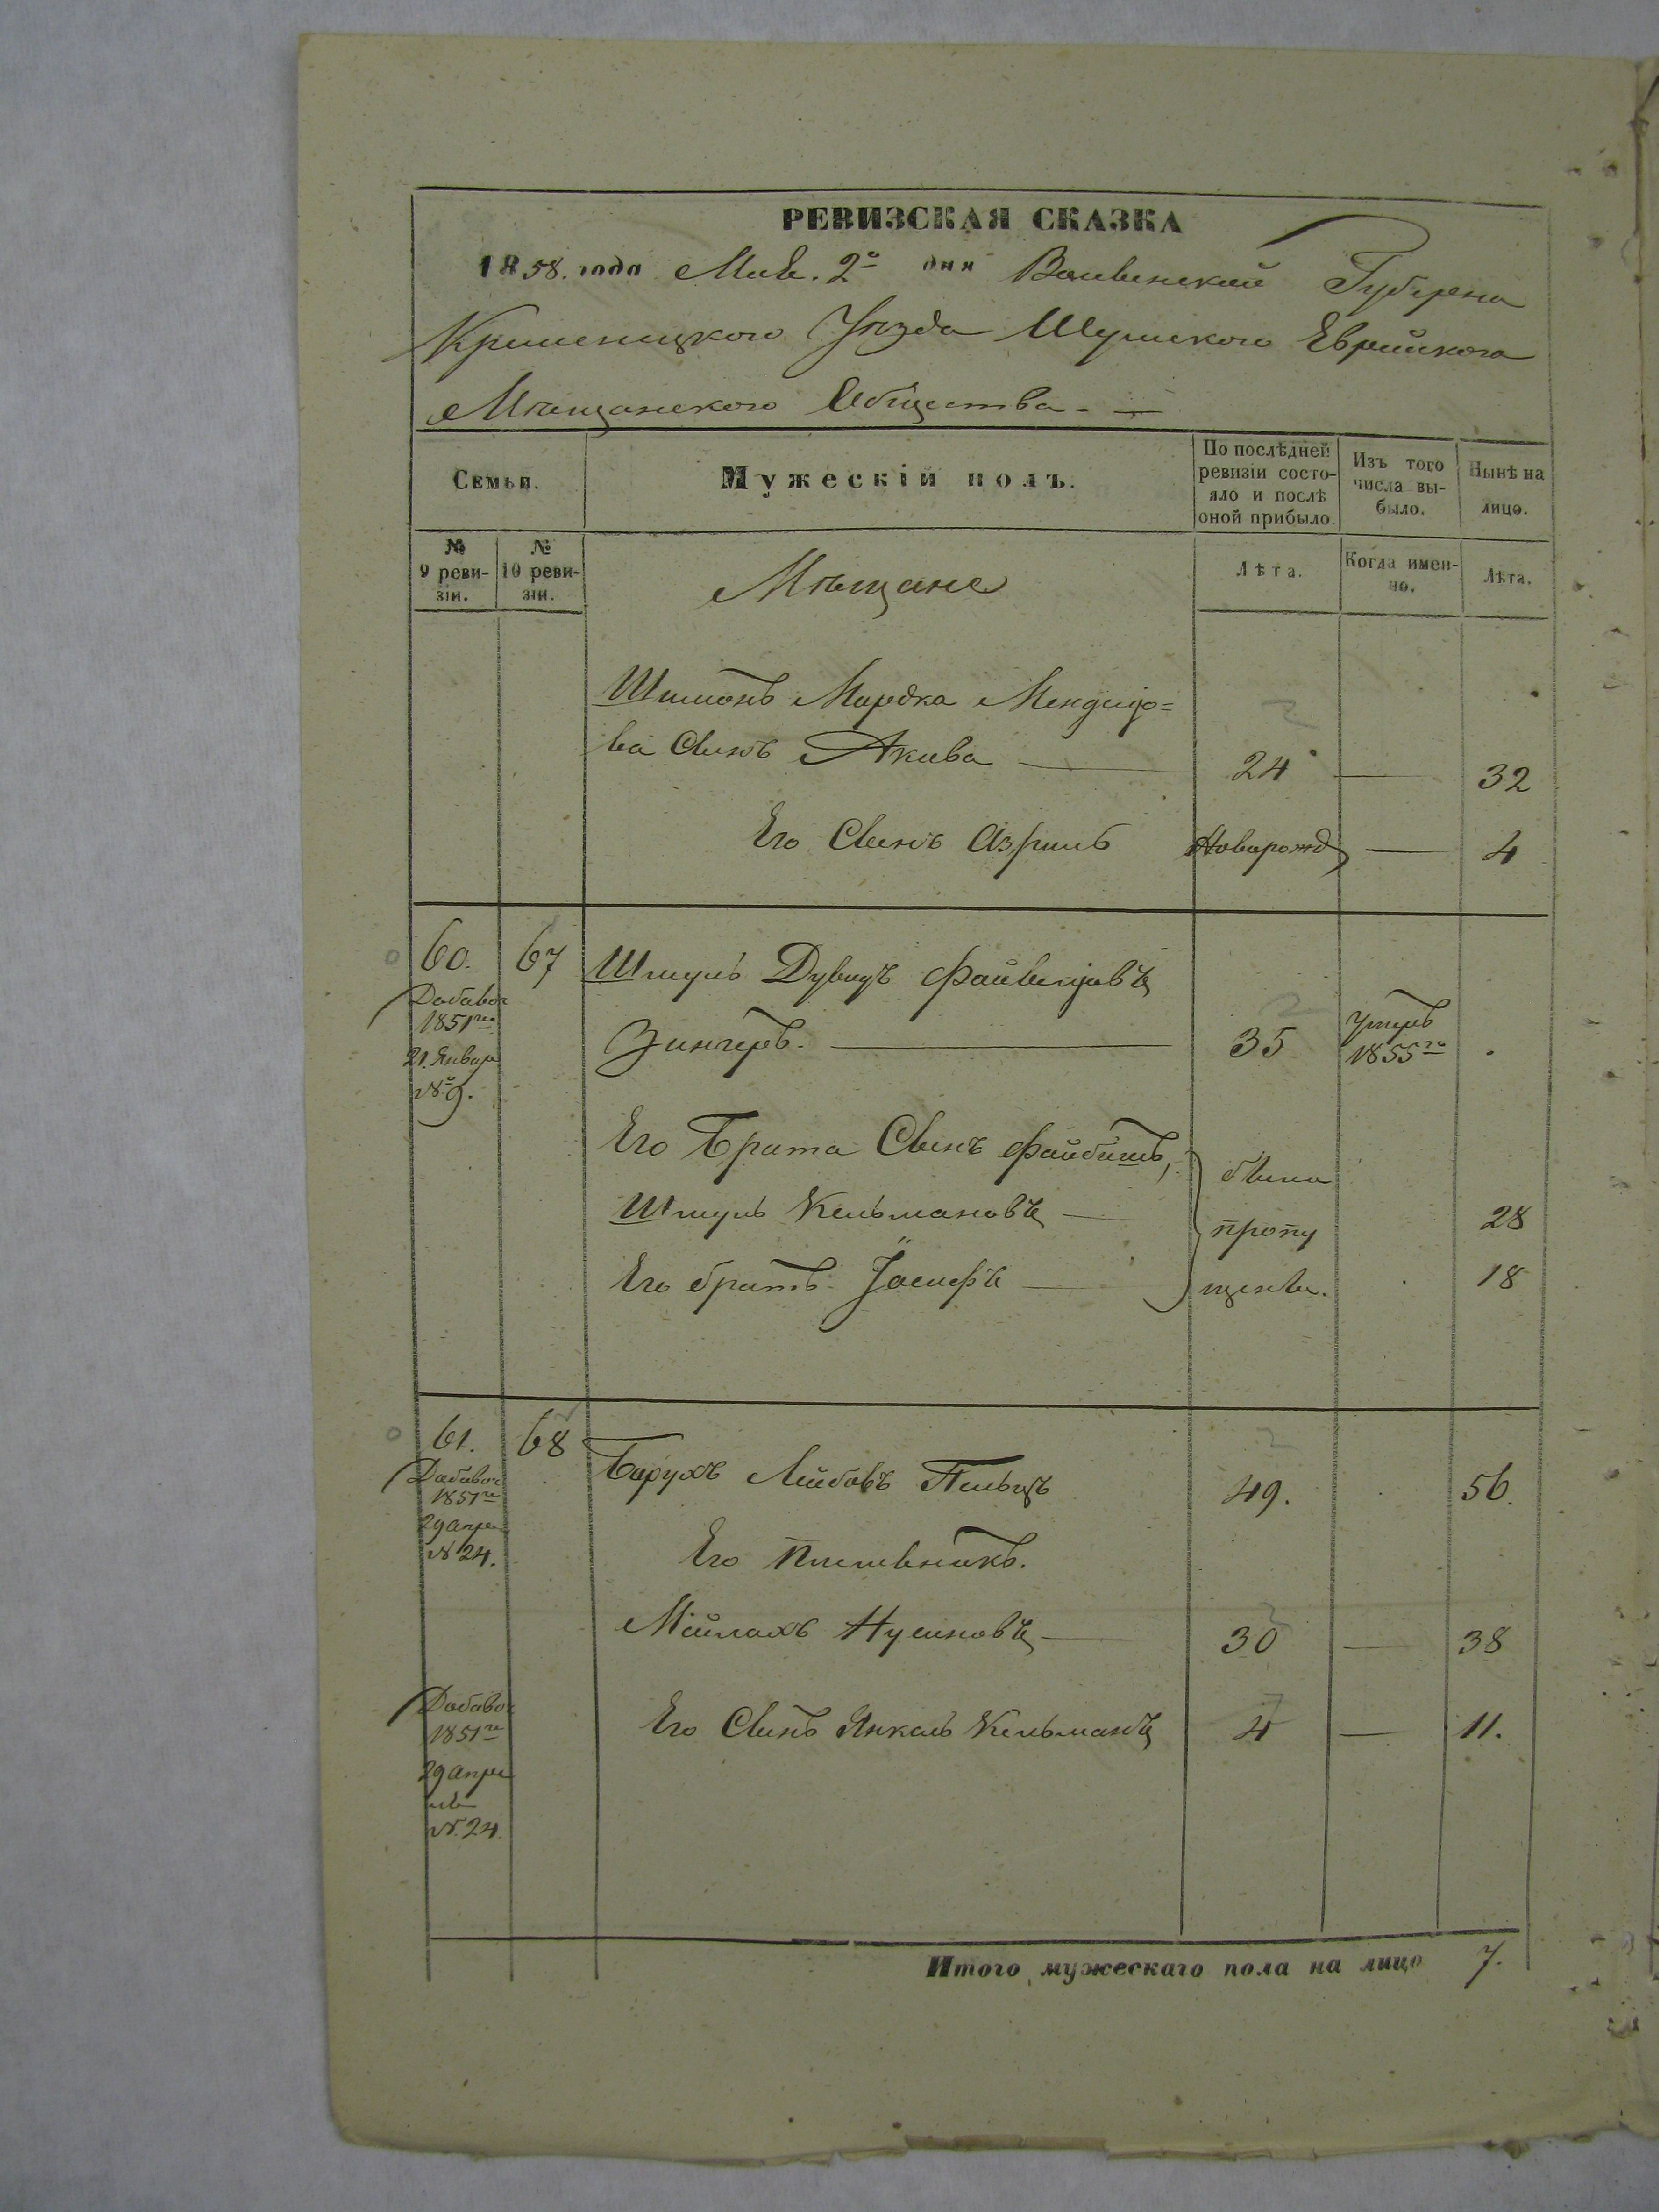 РЕВИЗСКАЯ СКАЗКА
1858. года Мая. 2го дня Волынской Губерни
Кременецкого Уѣзда Шумского Еврейского
Мѣщанского Общества. —
Семьи.
Мужескій полъ.
По послѣдней ревизіи состояло и послѣ оной прибыло.
Изъ того числа выбыло.
Нынѣ на лицо.
№ 9 ревизіи.
№ 10 ревизіи.
Мѣщане
Лѣта.
Когда именно.
Лѣта.
Шимонъ Мордка
ва Сынъ Акива — 24 — 32
Его Сынъ Азриль Новорожд — 4
60. 67 Шмуль Дувидъ Файвелювъ
Добавоч
1851го
21. Январ
№ 9.
Зингеръ. — 35 Умеръ 1855го
Его Брата Сынъ Файбишъ,
Шмуль Кельмановъ — 28
Его братъ Іосифъ — 18
были
пропу
щены.
61. 68 Барухъ Лейбовъ 49. 56.
Добавоч
1851го
29 апре
№ 24.
Его Племѣникъ.
Мейлахъ Нусиновъ — 30 — 38
Добавоч
1851го
29 апре
ля
№. 24.
Его Сынъ Янкель Кельманъ 4 — 11.
Итого мужескаго пола на лицо 7.